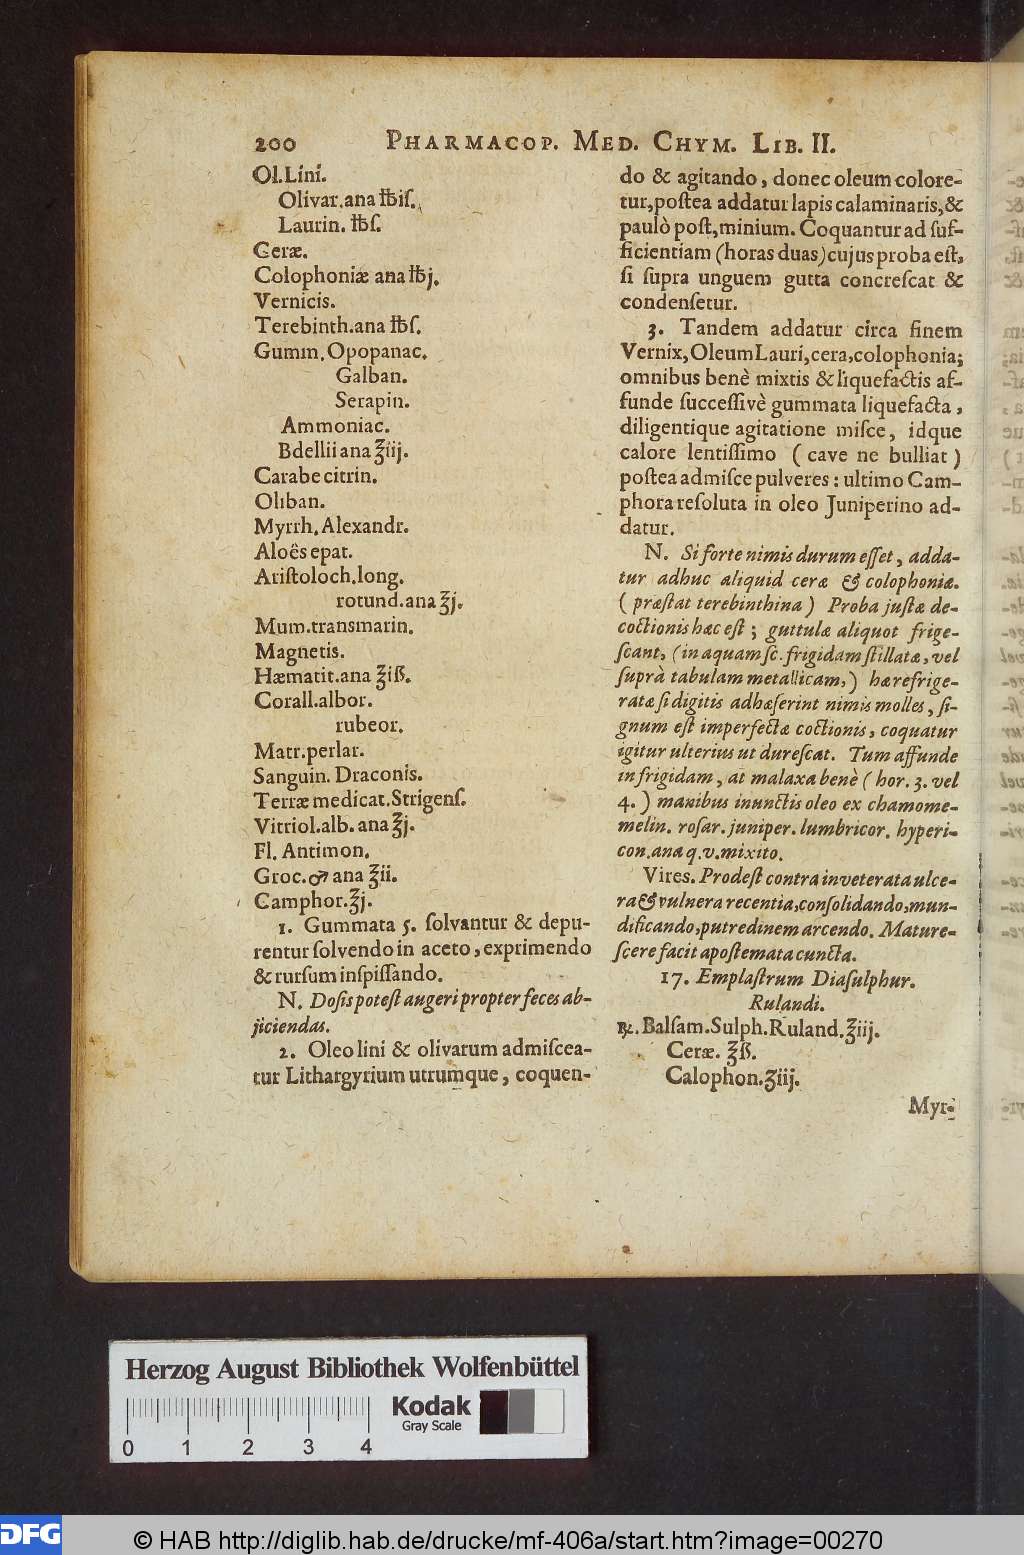 200 PHARMACOP. MED. CHYM. LIB. II.
Ol. Lini.
Olivar. ana ℔iſ.
Laurin. ℔ſ.
Ceræ.
Colophoniæ ana ℔j.
Vernicis.
Terebinth. ana ℔ſ.
Gumm. Opopanac.
Galban.
Serapin.
Ammoniac.
Bdellii ana ℥iij.
Carabe citrin.
Oliban.
Myrrh. Alexandr.
Aloës epat.
Ariſtoloch. long.
rotund. ana ℥j.
Mum. transmarin.
Magnetis.
Hæmatit. ana ℥iß.
Corall. albor.
rubeor.
Matr. perlar.
Sanguin. Draconis.
Terræ medicat. Strigenſ.
Vitriol. alb. ana ℥j.
Fl. Antimon.
Croc. ♂ ana ℥ii.
Camphor. ℥j.
1. Gummata 5. ſolvantur & depu-
rentur ſolvendo in aceto, exprimendo
& rurſum inſpiſſando.
N. Doſis poteſt augeri propter feces ab-
jiciendas.
2. Oleo lini & olivarum admiſcea-
tur Lithargyrium utrumque, coquen-
do & agitando, donec oleum colore-
tur, poſtea addatur lapis calaminaris, &
paulò poſt, minium. Coquantur ad ſuf-
ficientiam (horas duas) cujus proba eſt,
ſi ſupra unguem gutta concreſcat &
condenſetur.
3. Tandem addatur circa finem
Vernix, Oleum Lauri, cera, colophonia;
omnibus benè mixtis & liquefactis af-
funde ſucceſſivè gummata liquefacta,
diligentique agitatione miſce, idque
calore lentiſſimo (cave ne bulliat)
poſtea admiſce pulveres: ultimo Cam-
phora reſoluta in oleo Juniperino ad-
datur.
N. Si forte nimis durum eſſet, adda-
tur adhuc aliquid ceræ & colophoniæ.
(præſtat terebinthina) Proba juſtæ de-
coctionis hæc eſt; guttulæ aliquot frige-
ſcant, (in aquam ſc. frigidam ſtillatæ, vel
ſuprà tabulam metallicam,) hæ refrige-
ratæ ſi digitis adhæſerint nimis molles, ſi-
gnum eſt imperfectæ coctionis, coquatur
igitur ulterius ut dureſcat. Tum affunde
in frigidam, at malaxa benè (hor. 3. vel
4.) manibus inunctis oleo ex chamome-
melin. roſar. juniper. lumbricor. hyperi-
con. ana q. v. mixito.
Vires. Prodeſt contra inveterata ulce-
ra & vulnera recentia, conſolidando, mun-
dificando, putredinem arcendo. Mature-
ſcere facit apoſtemata cuncta.
17. Emplaſtrum Diaſulphur.
Rulandi.
℞. Balſam. Sulph. Ruland. ℥iij.
Ceræ. ℥ß.
Calophon. ℥iij.
Myr-
Herzog August Bibliothek Wolfenbüttel
Kodak
Gray Scale
0 1 2 3 4
DFG
© HAB http://diglib.hab.de/drucke/mf-406a/start.htm?image=00270